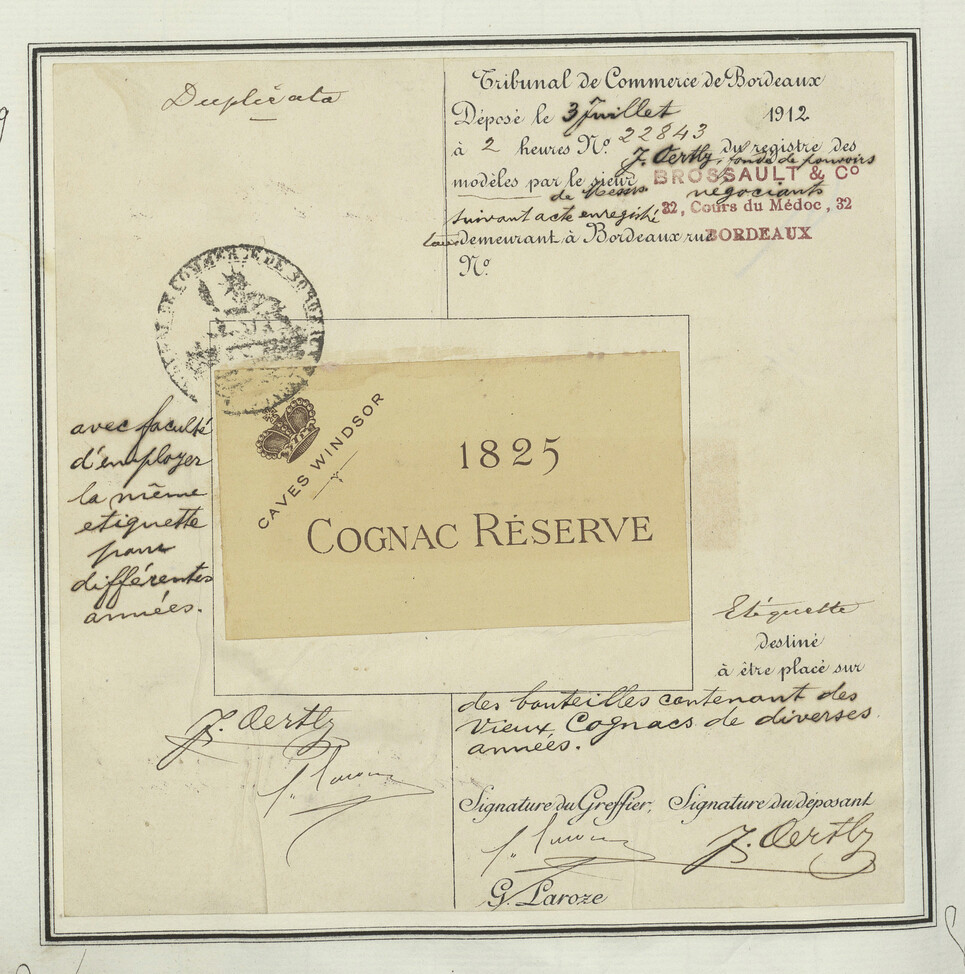 Duplicata
Tribunal de Commerce de Bordeaux
Déposé le 3 Juillet 1912
à 2 heures No. 22843 du registre des
modèles par le sieur J. Oertly, fondé de pouvoirs
de Messrs BROSSAULT & Co négociants
suivant acte enregistré 32, Cours du Médoc, 32
demeurant à Bordeaux rue BORDEAUX
No.
TRIBUNAL DE COMMERCE DE BORDEAUX
CAVES WINDSOR
1825
COGNAC RÉSERVE
avec faculté
d'employer
la même
etiquette
pour
différentes
années.
Etiquette
destiné
à être placé sur
des bouteilles contenant des
vieux Cognacs de diverses
années.
J. Oertly
Signature du Greffier, Signature du déposant
J. Oertly
G. Laroze